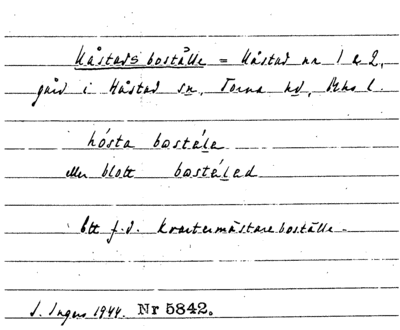 Håstads boställe = Håstad nr 1 & 2,
gård i Håstad sn, Torna hd, Mhs l.
hósta bostála
eller blott bostálad
Ett f.d. kvartermästareboställe.
I. Ingers 1944. Nr 5842.